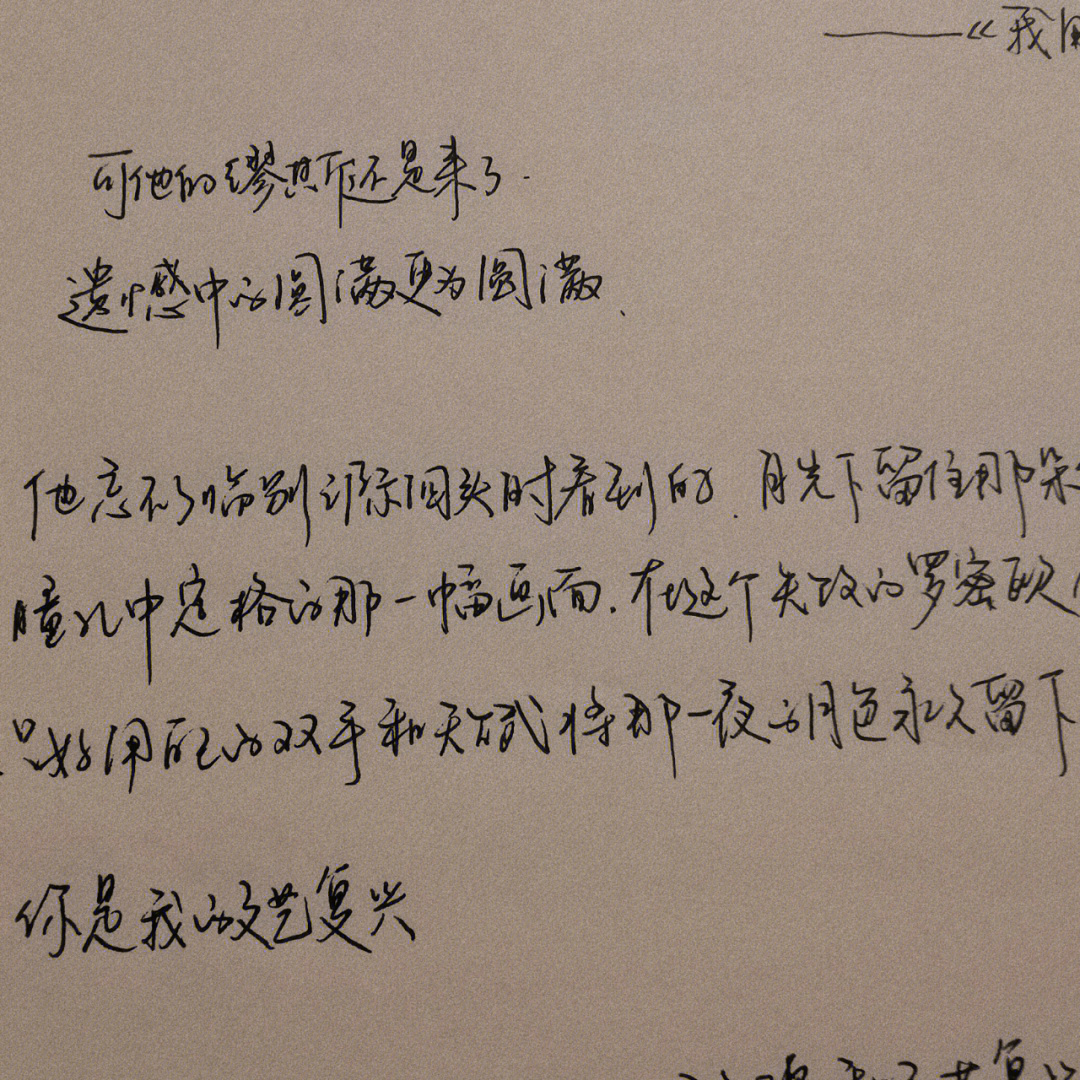 ——《我
可他的缪斯还是来了.
遗憾中的圆满更为圆满、
他忘不了临别 回头时看到的.月光下留住那朵
瞳孔中定格的那一幅画面.在这个失败的罗密欧
只好用 的双手和天赋将那一夜的月色永久留下
你是我的文艺复兴